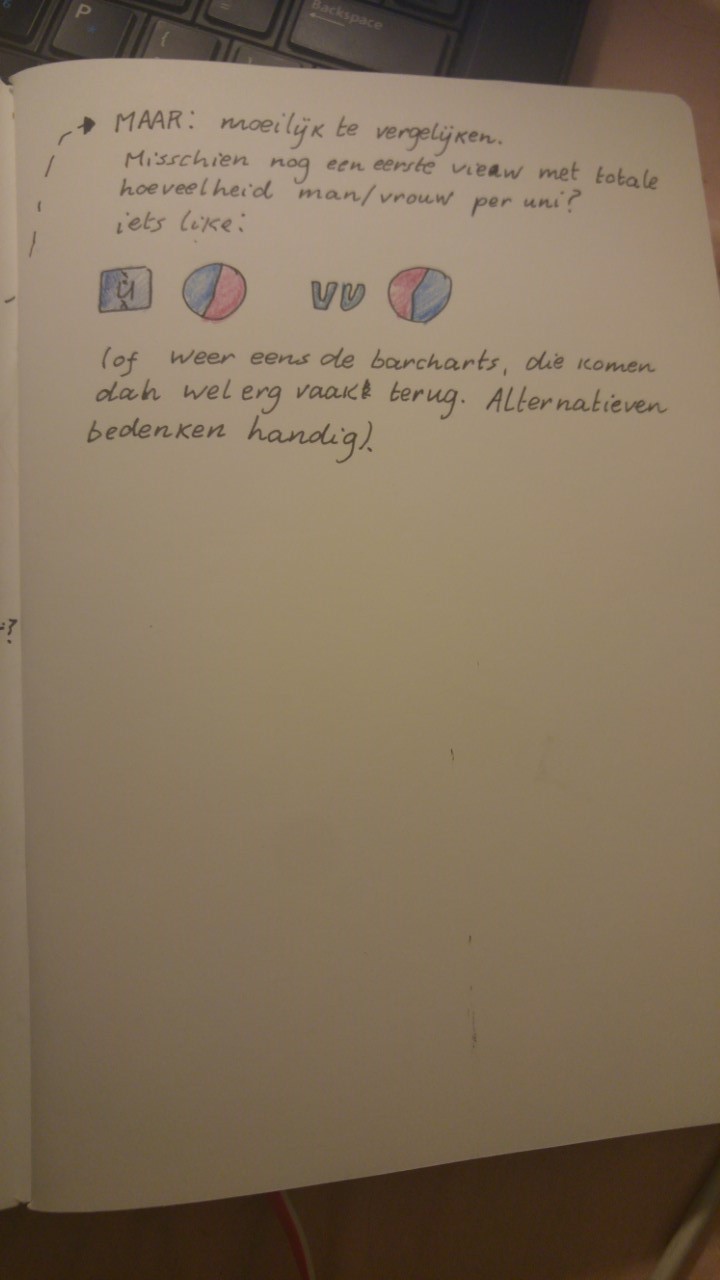 P
Backspace
{
[
=
MAAR: moeilijk te vergelijken.
Misschien nog een eerste view met totale
hoeveelheid man/vrouw per uni?
iets like:
VU
(of weer eens de barcharts, die komen
dan wel erg vaak terug. Alternatieven
bedenken handig).
?